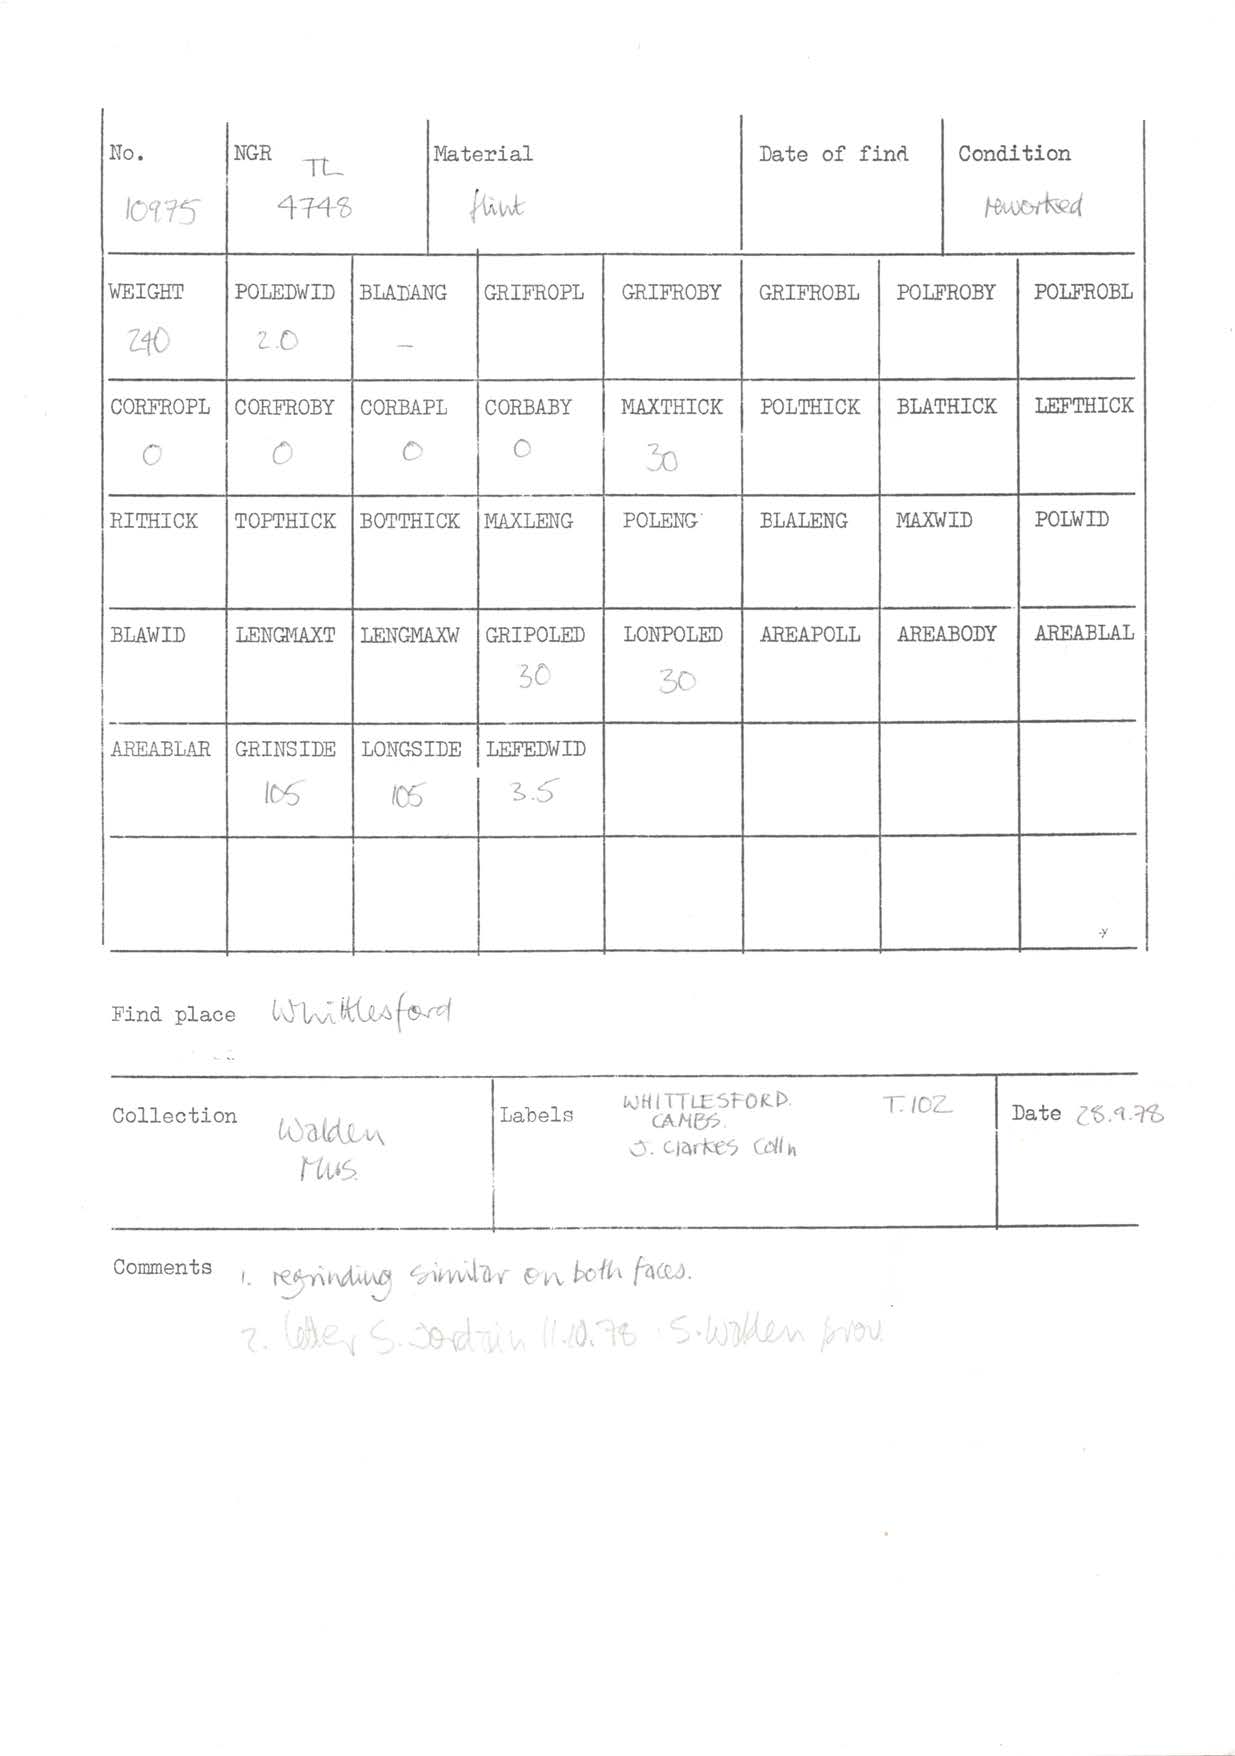 No. NGR TL Material Date of find Condition
10975 4748 flint reworked
WEIGHT POLEDWID BLADANG GRIFROPL GRIFROBY GRIFROBL POLFROBY POLFROBL
240 2.0 –
CORFROPL CORFROBY CORBAPL CORBABY MAXTHICK POLTHICK BLATHICK LEFTHICK
0 0 0 0 30
RITHICK TOPTHICK BOTTHICK MAXLENG POLENG BLALENG MAXWID POLWID
BLAWID LENGMAXT LENGMAXW GRIPOLED LONPOLED AREAPOLL AREABODY AREABLAL
30 30
AREABLAR GRINSIDE LONGSIDE LEFEDWID
105 105 3.5
Find place Whittlesford
Collection Walden Mus.
Labels WHITTLESFORD. T.102
CAMBS.
J. Clarkes Colln
Date 28.9.78
Comments 1. regrinding similar on both faces.
2. letter S. Jordain 11.10.78 S. Walden prov.